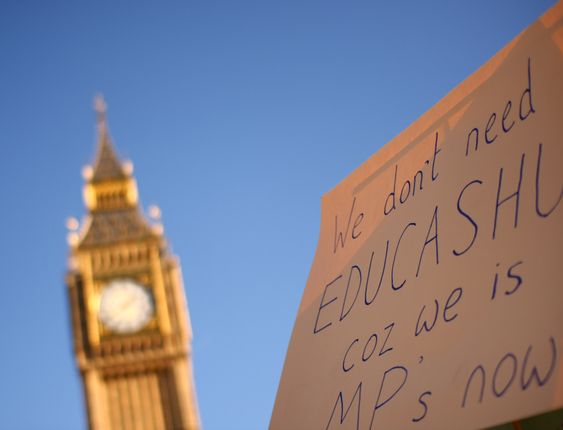 We don't need
EDUCASHU
coz we is
MP's now